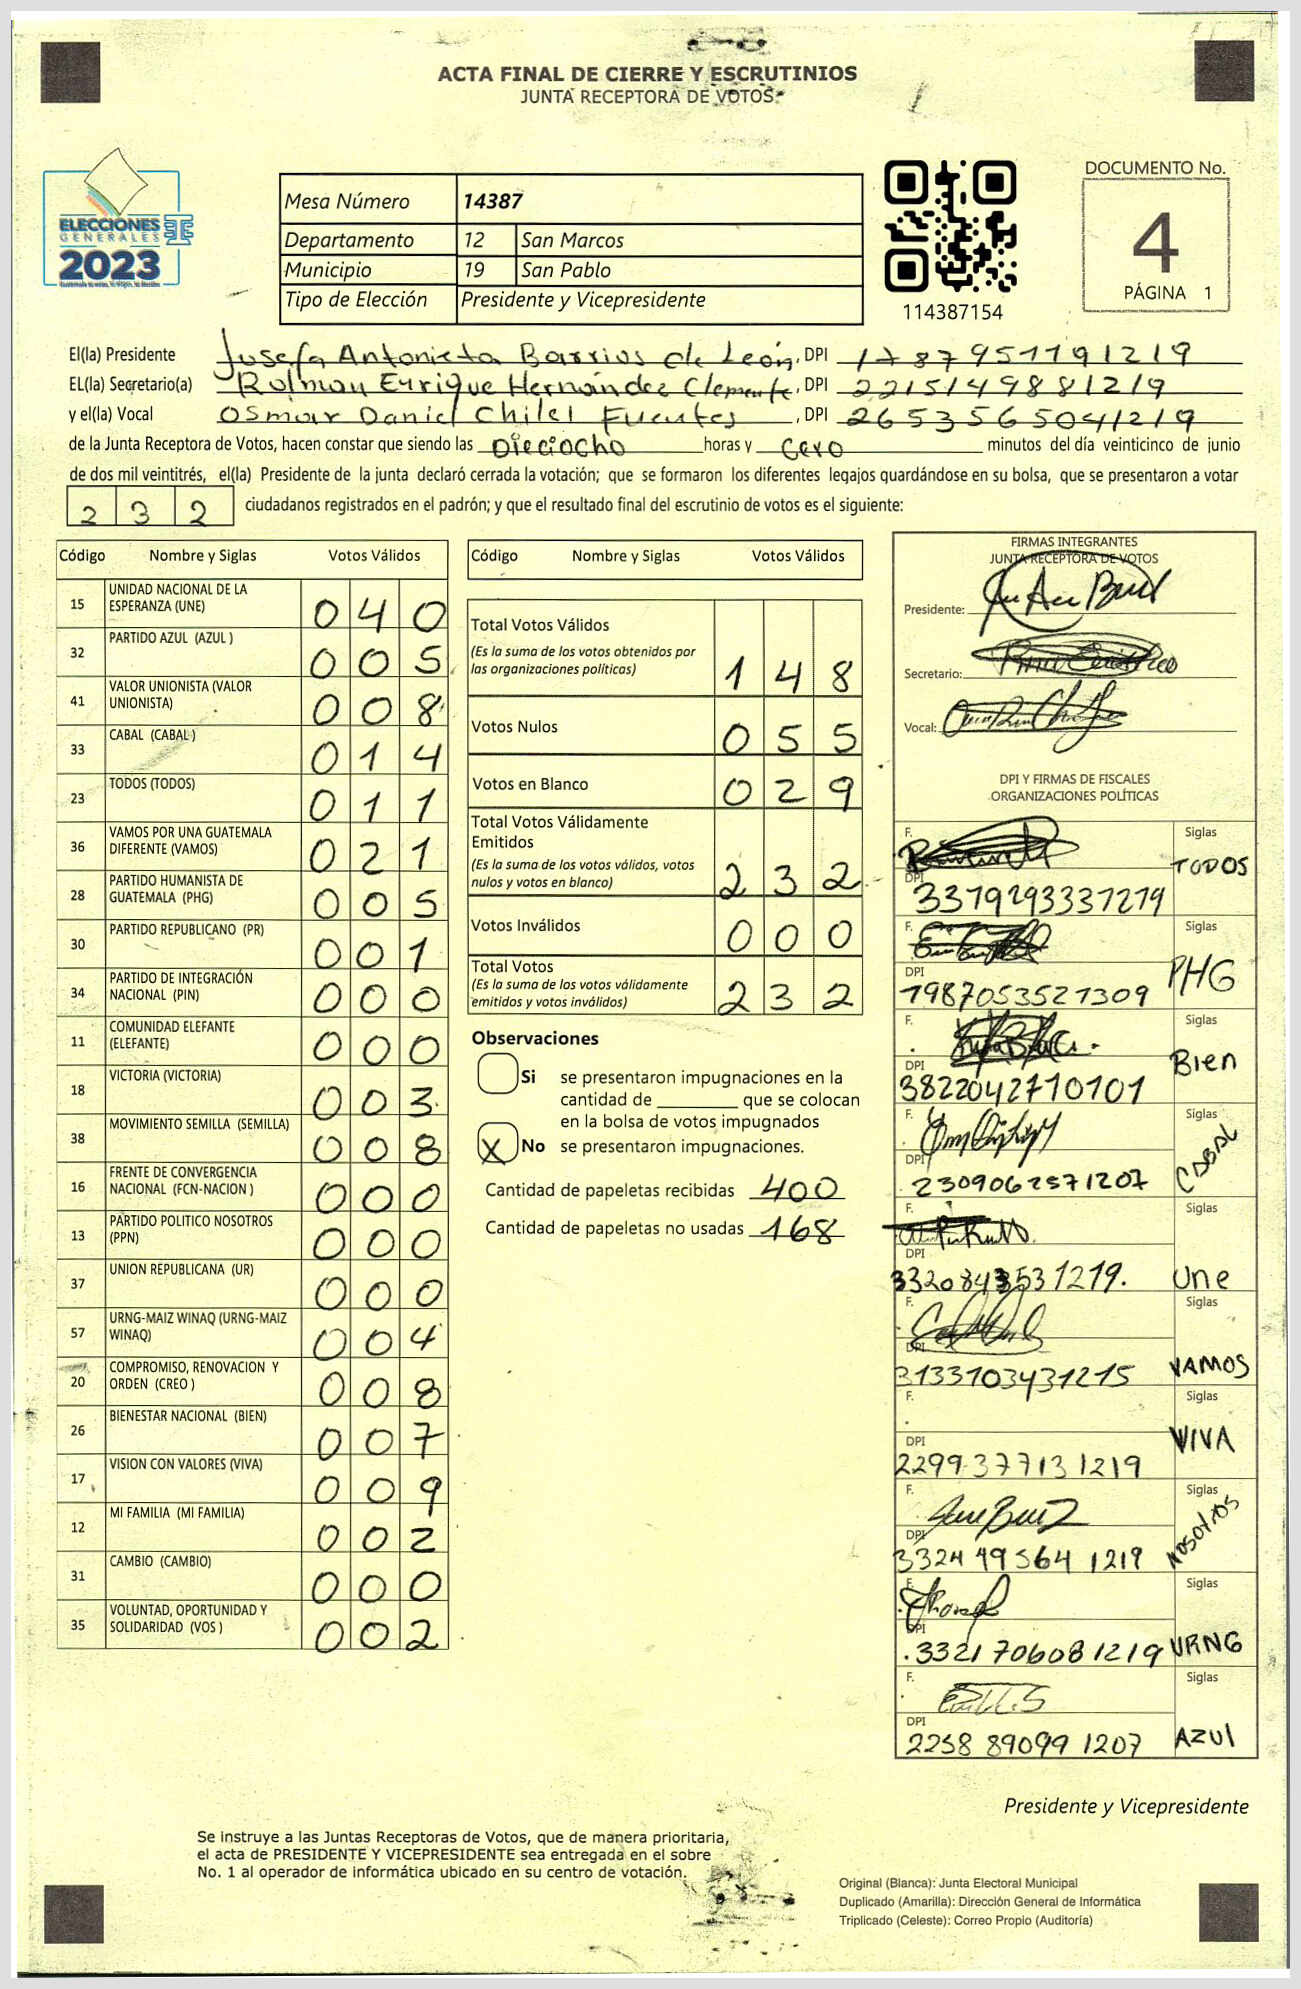 ACTA FINAL DE CIERRE Y ESCRUTINIOS
JUNTA RECEPTORA DE VOTOS
ELECCIONES
GENERALES
2023
Mesa Número 14387
Departamento 12 San Marcos
Municipio 19 San Pablo
Tipo de Elección Presidente y Vicepresidente
114387154
DOCUMENTO No.
4
PÁGINA 1
El(la) Presidente Josefa Antonieta Barrios de León, DPI 1787951191219
EL(la) Secretario(a) Rolman Enrique Hernández Clemente, DPI 2215149881219
y el(la) Vocal Osmar Daniel Chilel Fuentes, DPI 2653565041219
de la Junta Receptora de Votos, hacen constar que siendo las Dieciocho horas y cero minutos del día veinticinco de junio
de dos mil veintitrés, el(la) Presidente de la junta declaró cerrada la votación; que se formaron los diferentes legajos quardándose en su bolsa, que se presentaron a votar
232 ciudadanos registrados en el padrón; y que el resultado final del escrutinio de votos es el siguiente:
Código Nombre y Siglas Votos Válidos
15 UNIDAD NACIONAL DE LA ESPERANZA (UNE) 040
32 PARTIDO AZUL (AZUL ) 005
41 VALOR UNIONISTA (VALOR UNIONISTA) 008
33 CABAL (CABAL ) 014
23 TODOS (TODOS) 011
36 VAMOS POR UNA GUATEMALA DIFERENTE (VAMOS) 021
28 PARTIDO HUMANISTA DE GUATEMALA (PHG) 005
30 PARTIDO REPUBLICANO (PR) 001
34 PARTIDO DE INTEGRACIÓN NACIONAL (PIN) 000
11 COMUNIDAD ELEFANTE (ELEFANTE) 000
18 VICTORIA (VICTORIA) 003
38 MOVIMIENTO SEMILLA (SEMILLA) 008
16 FRENTE DE CONVERGENCIA NACIONAL (FCN-NACION ) 000
13 PARTIDO POLITICO NOSOTROS (PPN) 000
37 UNION REPUBLICANA (UR) 000
57 URNG-MAIZ WINAQ (URNG-MAIZ WINAQ) 004
20 COMPROMISO, RENOVACION Y ORDEN (CREO ) 008
26 BIENESTAR NACIONAL (BIEN) 007
17 VISION CON VALORES (VIVA) 009
12 MI FAMILIA (MI FAMILIA) 002
31 CAMBIO (CAMBIO) 000
35 VOLUNTAD, OPORTUNIDAD Y SOLIDARIDAD (VOS ) 002
Código Nombre y Siglas Votos Válidos
Total Votos Válidos
(Es la suma de los votos obtenidos por
las organizaciones políticas) 148
Votos Nulos 055
Votos en Blanco 029
Total Votos Válidamente
Emitidos
(Es la suma de los votos válidos, votos
nulos y votos en blanco) 232
Votos Inválidos 000
Total Votos
(Es la suma de los votos válidamente
emitidos y votos inválidos) 232
Observaciones
Si se presentaron impugnaciones en la
cantidad de ________ que se colocan
en la bolsa de votos impugnados
X No se presentaron impugnaciones.
Cantidad de papeletas recibidas 400
Cantidad de papeletas no usadas 168
FIRMAS INTEGRANTES
JUNTA RECEPTORA DE VOTOS
Presidente:
Secretario:
Vocal:
DPI Y FIRMAS DE FISCALES
ORGANIZACIONES POLÍTICAS
F. Siglas
TODOS
DPI
3379293331219
F. Siglas
PHG
DPI
1987053521309
F. Siglas
Bien
DPI
3822042710101
F. Siglas
CABAL
DPI
2309062571207
F. Siglas
Une
DPI
3320843531219.
F. Siglas
VAMOS
DPI
3133103431215
F. Siglas
VIVA
DPI
2299377131219
F. Siglas
NOSOTROS
DPI
3324495641219
F. Siglas
URNG
DPI
3321706081219
F. Siglas
AZUl
DPI
2258 89099 1207
Presidente y Vicepresidente
Se instruye a las Juntas Receptoras de Votos, que de manera prioritaria,
el acta de PRESIDENTE Y VICEPRESIDENTE sea entregada en el sobre
No. 1 al operador de informática ubicado en su centro de votación.
Original (Blanca): Junta Electoral Municipal
Duplicado (Amarilla): Dirección General de Informática
Triplicado (Celeste): Correo Propio (Auditoría)